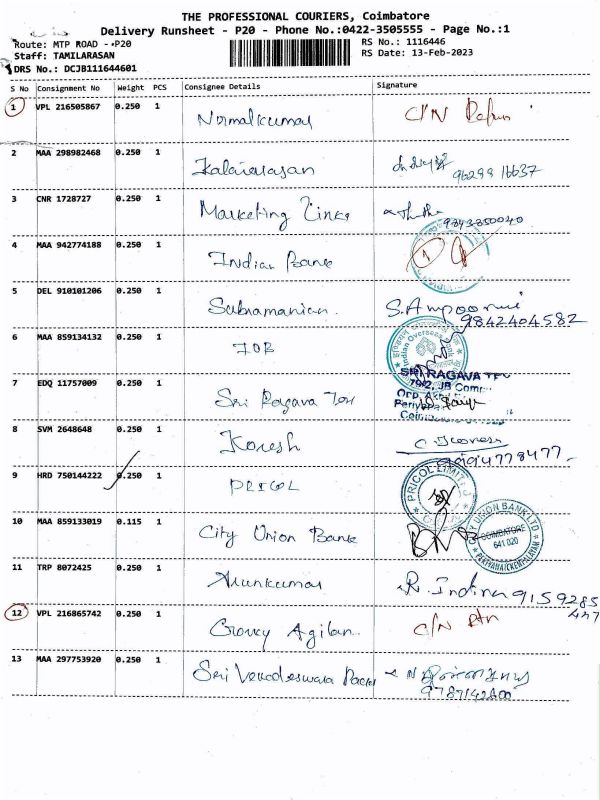 THE PROFESSIONAL COURIERS, Coimbatore
Delivery Runsheet - P20 - Phone No.:0422-3505555 - Page No.:1
Route: MTP ROAD - P20
RS No.: 1116446
Staff: TAMILARASAN
RS Date: 13-Feb-2023
DRS No.: DCJB111644601
S No Consignment No Weight PCS Consignee Details Signature
1 VPL 216505867 0.250 1 Nirmalkumar C/N
2 MAA 298982468 0.250 1 Kalaiarasan
96299 16637
3 CNR 1728727 0.250 1 Marketing Links
9843350040
4 MAA 942774188 0.250 1 Indian Bank
5 DEL 910101206 0.250 1 Subramanian. S.
9842404582
6 MAA 859134132 0.250 1 IOB
Indian Overseas
7 EDQ 11757009 0.250 1 Sri Ragava Tex
SRI RAGAVA
79/2, JB
8 SVM 2648648 0.250 1 Koresh
9994778477
9 HRD 750144222 0.250 1 PRICOL
PRICOL LIMITED
10 MAA 859133019 0.115 1 City Union Bank
CITY UNION BANK LTD
COIMBATORE
641 020
11 TRP 8072425 0.250 1 Arunkumar R.
9159285
447
12 VPL 216865742 0.250 1 Agilan C/N Rtn
13 MAA 297753920 0.250 1 Sri